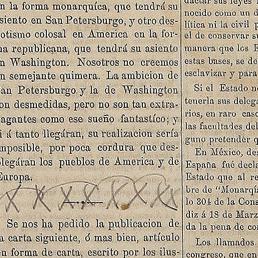 en la forma monárquica, que tendrá su
asiento en San Petersburgo, y otro des-
potismo colosal en America en la for-
ma republicana, que tendrá su asiento
en Washington. Nosotros no creemos
en semejante quimera. La ambicion de
San Petersburgo y la de Washington
son desmedidas, pero no son tan extra-
vagantes como ese sueño fantastico; y
si á tanto llegáran, su realizacion sería
imposible, por poca cordura que des-
plegáran los pueblos de America y de
Europa.
Se nos ha pedido la publicacion de
la carta siguiente, ó mas bien, artículo
en forma de carta, escrito por los ilus-
dactar sus leyes
nocido como un d
lítica ni la civil
de conservar su
manera que los E
estas bases, se de
esclavizar y para
Si el Estado n
tenerla sus delega
rios, en raro caso
las facultades del
guno pretender q
En México, des
España fué decla
Estado que al re
bre de "Monarqu
lo 30 de la Cons
diz á 18 de Marz
da la pena de co
Los llamados
congreso, que en